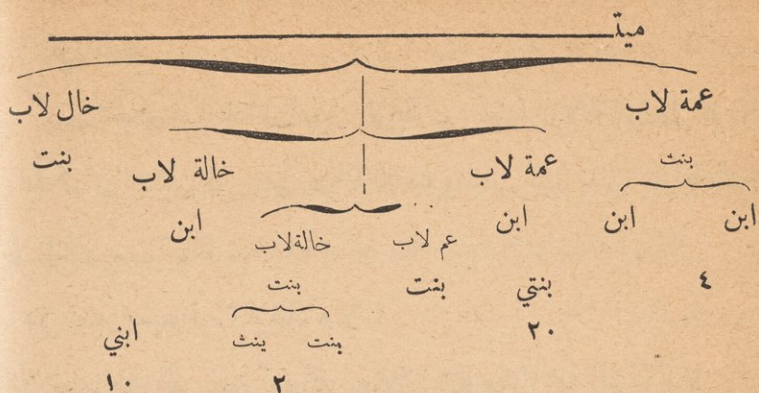 ميتـ
عمة لاب خال لاب
بنت عمة لاب خالة لاب بنت
ابن ابن ابن ابن
عم لاب خالة لاب
٤ بنتي بنت بنت
٢٠ بنت ينث ابني
٢ ١٠